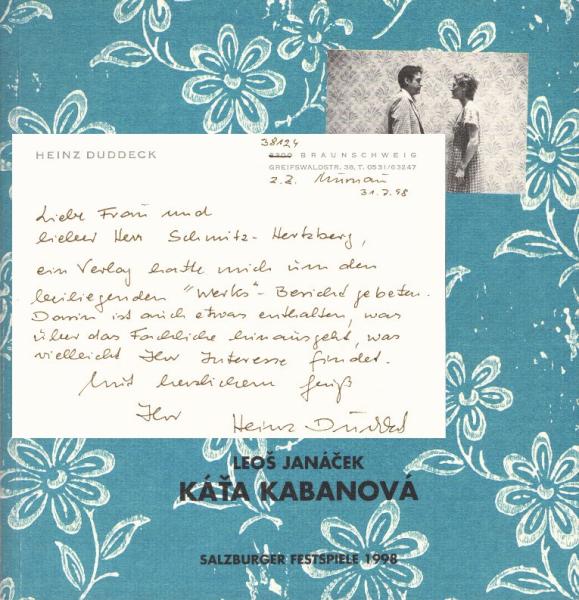 HEINZ DUDDECK
38124
3300 BRAUNSCHWEIG
GREIFSWALDSTR. 38, T. 0531/63247
z.Z. Murnau
31.7.98
Liebe Frau und
lieber Herr Schmitz-Hertzberg,
ein Verlag hatte mich um den
beiliegenden "Werks"-Bericht gebeten.
Darin ist auch etwas enthalten, was
über das Fachliche hinausgeht, was
vielleicht Ihr Interesse findet.
Mit herzlichem Gruß
Ihr
Heinz Duddeck
LEOŠ JANÁČEK
KÁŤA KABANOVÁ
SALZBURGER FESTSPIELE 1998